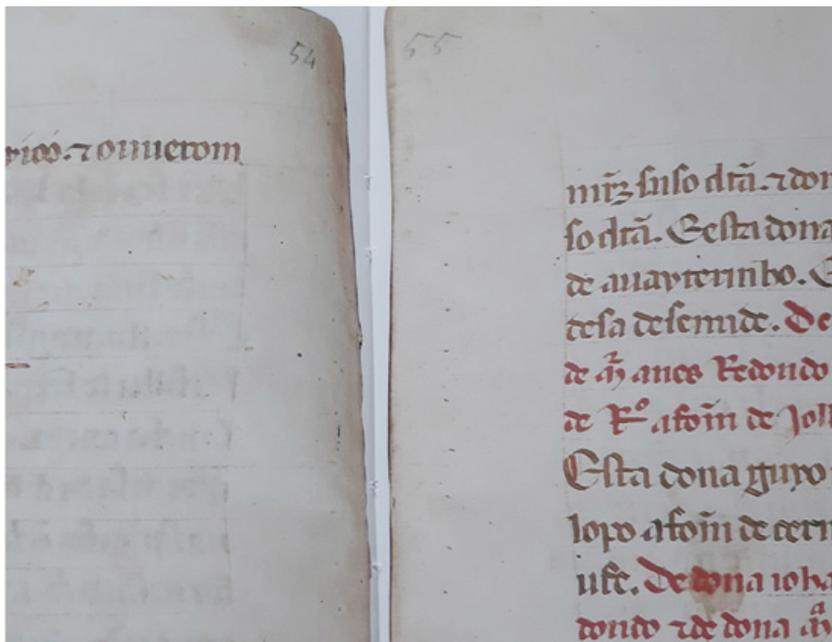 54
ricos. ⁊ ouuerom
55
mr̄z suso dtā. ⁊ don
so dtā. E esta dona
de auayterinho. E
tesa de semide. De
de m̄ anes Redondo
de R.º afom̄ de
Esta dona guyo
lopo afom̄ de cern
ufe. De dona ioha
dondo ⁊ de dona